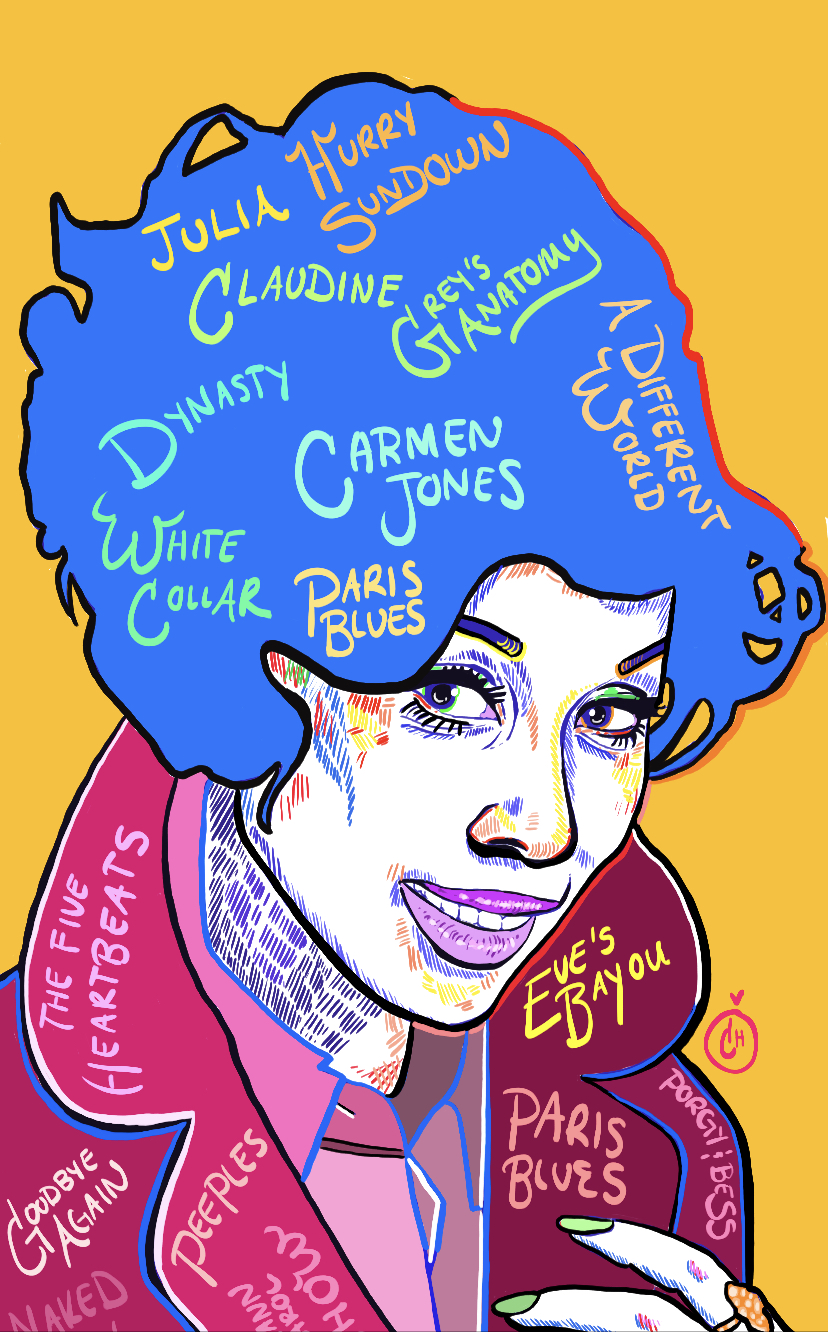 JULIA
HURRY
SUNDOWN
CLAUDINE
GREY'S
ANATOMY
A DIFFERENT
WORLD
DYNASTY
CARMEN
JONES
WHITE
COLLAR
PARIS
BLUES
THE FIVE
HEARTBEATS
EVE'S
BAYOU
PORGY & BESS
PARIS
BLUES
GOODBYE
AGAIN
PEEPLES
NAKED